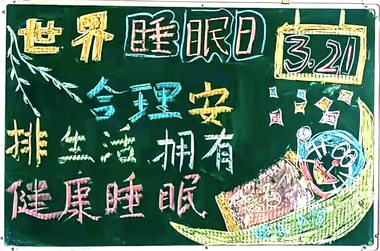 世界睡眠日
3.21
合理安
排生活拥有
健康睡眠